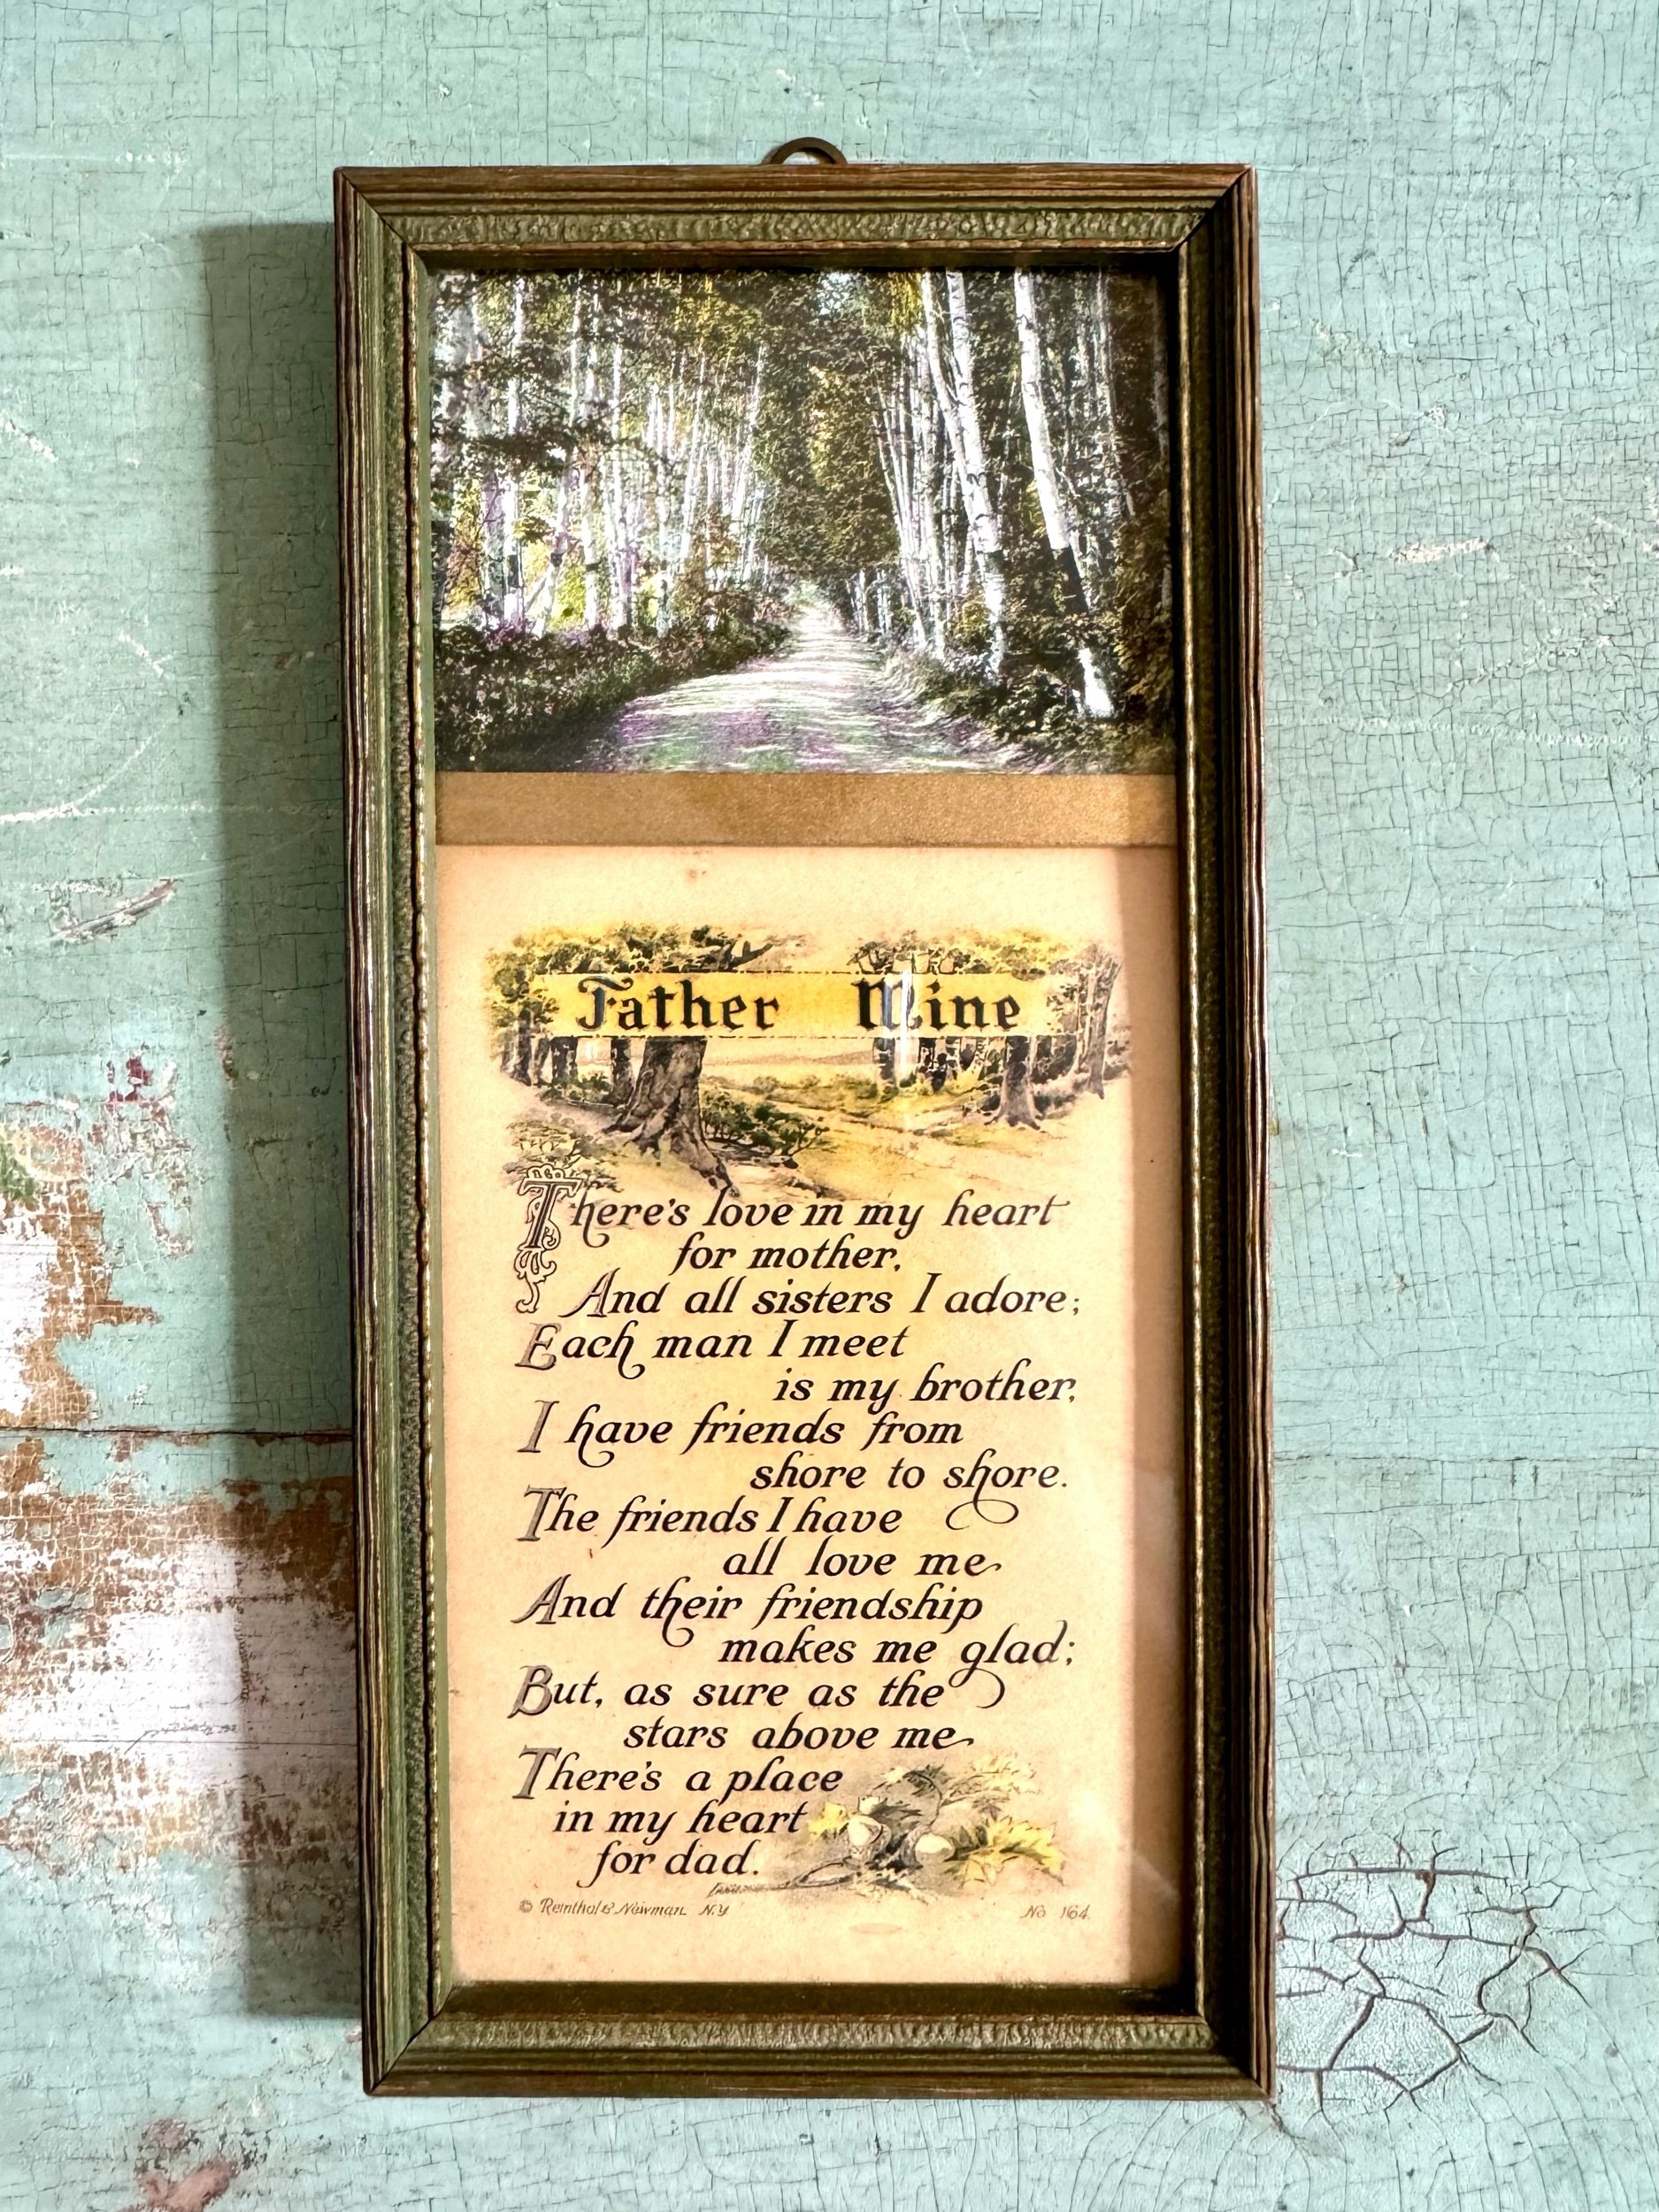 Father Mine
There's love in my heart
for mother,
And all sisters I adore;
Each man I meet
is my brother,
I have friends from
shore to shore.
The friends I have
all love me
And their friendship
makes me glad;
But, as sure as the
stars above me
There's a place
in my heart
for dad.
© Reinthal & Newman. N.Y
No 164.